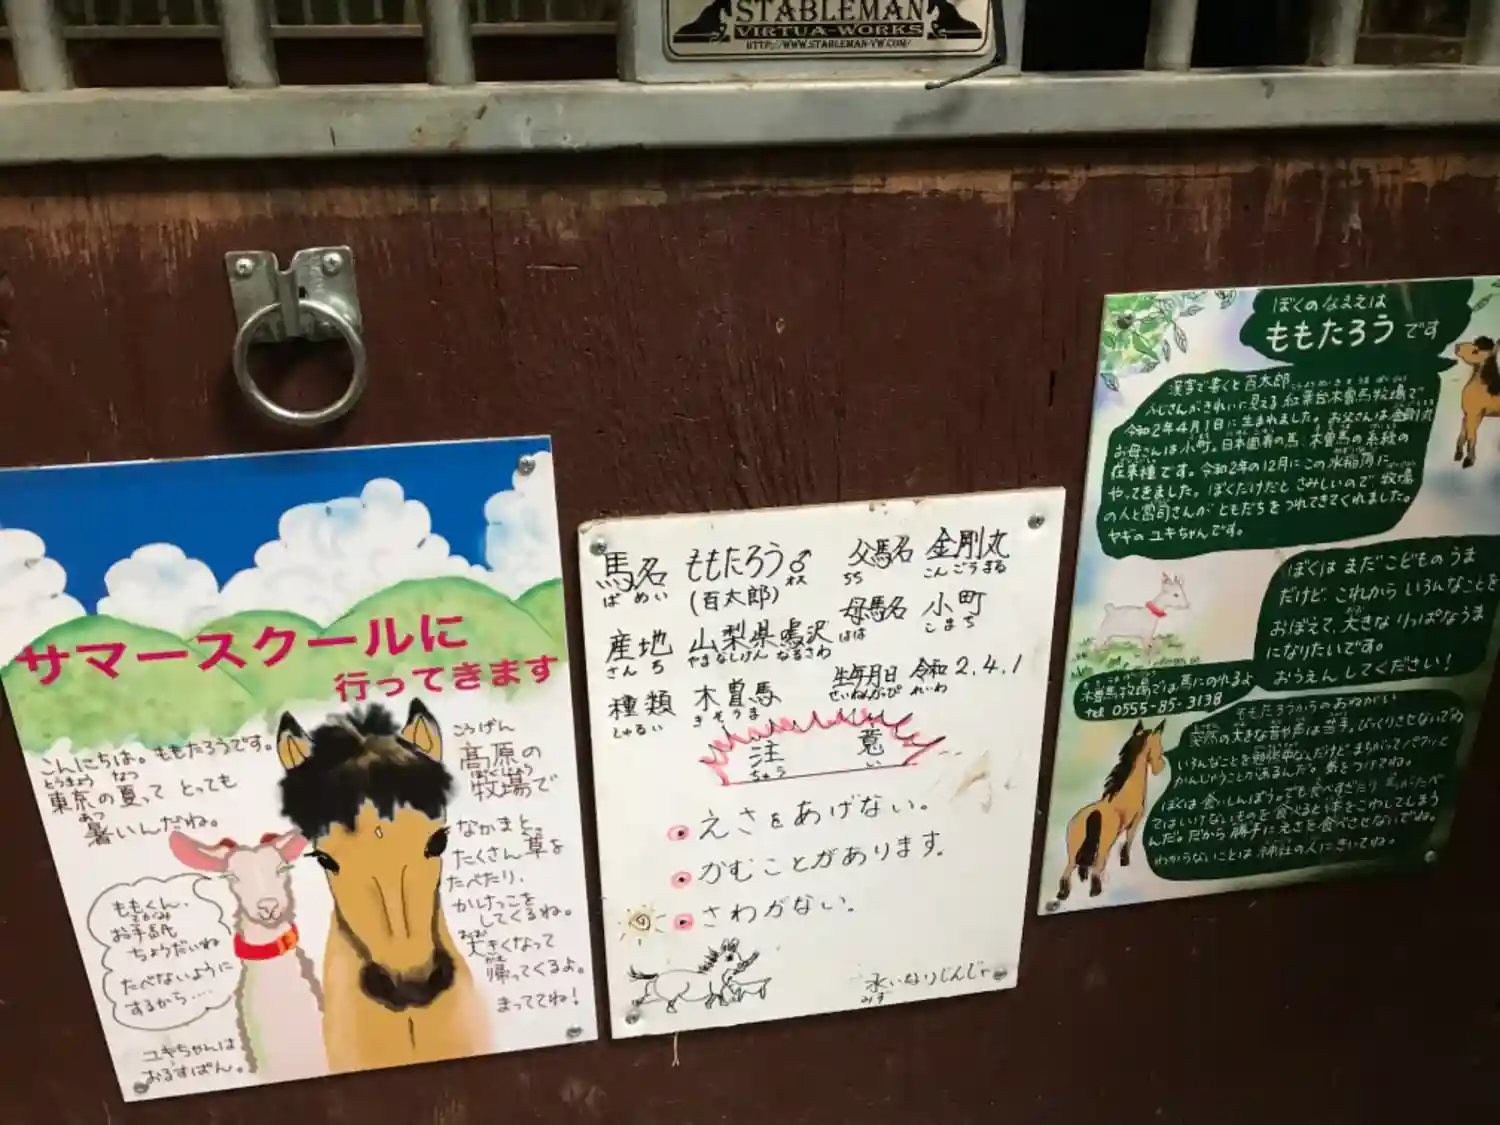 STABLEMAN
VIRTUA-WORKS
HTTP://WWW.STABLEMAN-VW.COM/
サマースクールに
行ってきます
こんにちは。ももたろうです。
とうきょう なつ
東京の夏って とっても
あつ
暑いんだね。
こうげん
高原の
ぼくじょう
牧場で
なかまと
たくさん草を
たべたり、
かけっこを
してくるね。
おお
大きくなって
かえ
帰ってくるよ。
まっててね!
ももくん、
おてがみ
お手紙
ちょうだいね
たべないように
するから....
ユキちゃんは
おるすばん。
馬名 ももたろう♂ オス
ばめい
(百太郎)
産地 山梨県鳴沢
さんち やまなしけん なるさわ
種類 木曽馬
しゅるい きそうま
父馬名 金剛丸
ちち こんごうまる
母馬名 小町
はは こまち
生年月日 令和2.4.1
せいねんがっぴ れいわ
注意
ちゅうい
えさをあげない。
かむことがあります。
さわがない。
水いなりじんじゃ
みず
ぼくのなまえは
ももたろうです
漢字で書くと百太郎
ふじさんがきれいに見える 紅葉台木曽馬牧場で
令和2年4月1日に生まれました。お父さんは金剛丸
お母さんは小町。日本固有の馬、木曽馬の系統の
在来種です。令和2年の12月にこの水稲荷に
やってきました。ぼくだけだとさみしいので 牧場
の人と宮司さんが ともだちをつれてきてくれました。
ヤギのユキちゃんです。
ぼくは まだこどものうま
だけど、これから いろんなことを
おぼえて、大きな りっぱなうま
になりたいです。
おうえん してください!
木曽馬牧場では馬にのれるよ
tel 0555-85-3138
ももたろうからのおねがい
突然の大きな音や声は苦手。びっくりさせないでね
いろんなことを勉強中なんだけどまちがってパクッと
かんじゃうことがあるんだ。気をつけてね。
ぼくは食いしんぼう。でも食べすぎたり 馬がたべ
てはいけないものを食べると体をこわしてしまう
んだ。だから勝手にえさを食べさせないでね。
わからないことは神社の人にきいてね。